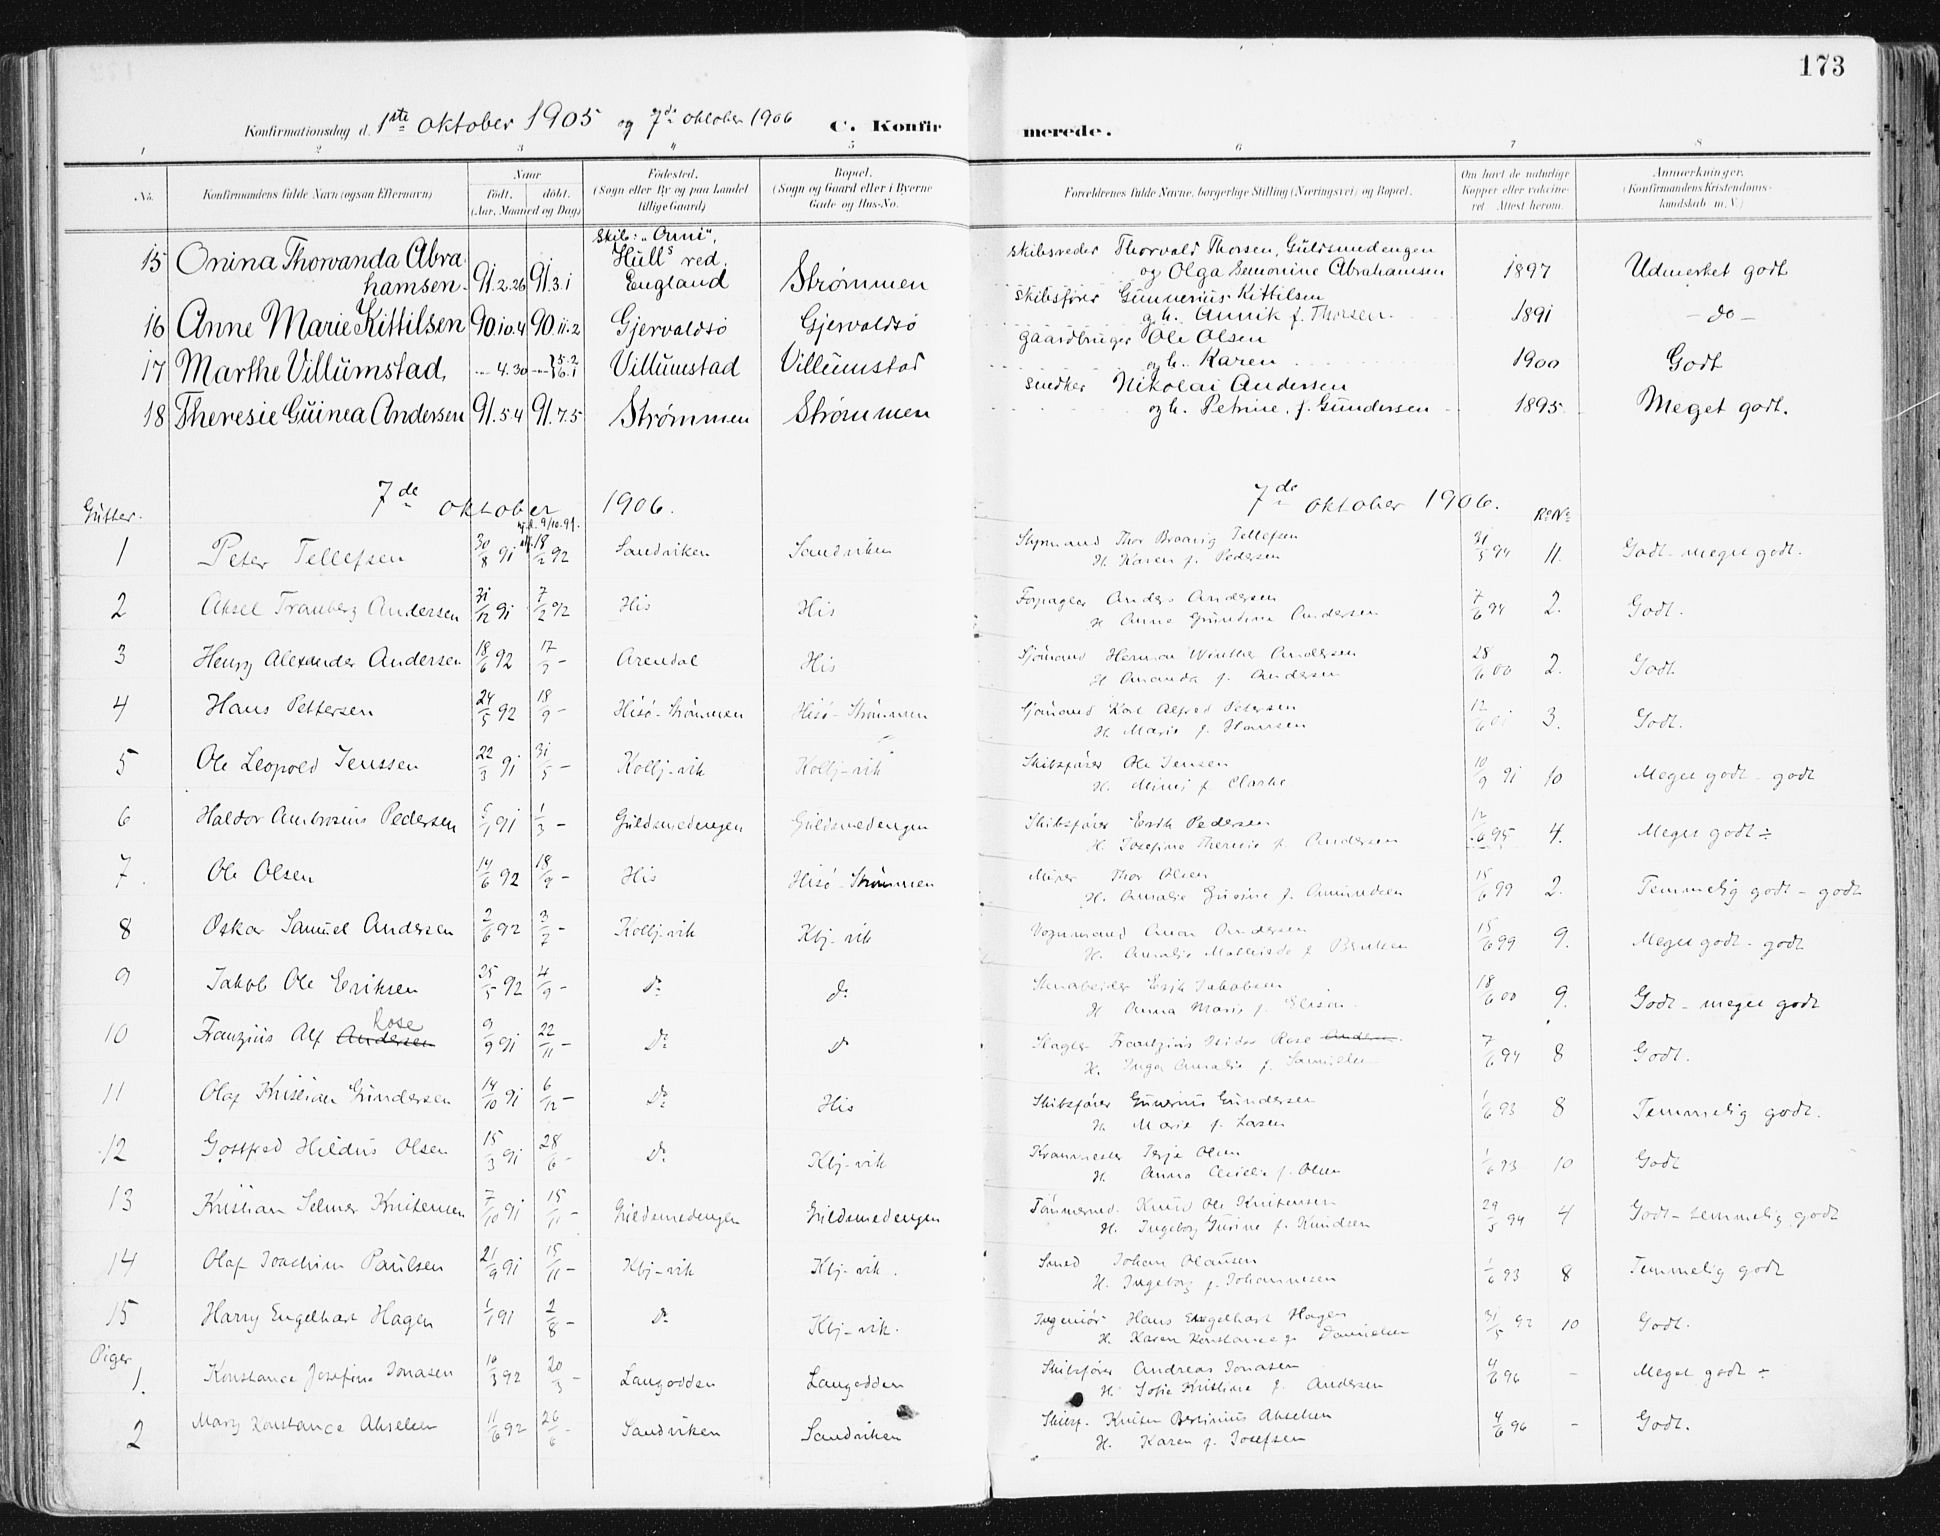 173
Konfirmationsdag d. 1ste oktober 1905 og 7de oktober 1906 C. Konfirmerede.
1 2 3 4 5 6 7 8
No. Konfirmandens fulde Navn (ogsaa Efternavn) Naar født, døbt. (Aar, Maaned og Dag) Fødested. (Sogn eller By og paa Landet tillige Gaard) Bopæl. (Sogn og Gaard eller i Byerne Gade og Hus-No. Forældrenes fulde Navne, borgerlige Stilling (Næringsvei) og Bopæl. Om havt de naturlige Kopper eller vaksineret. Attest herom. Anmerkninger. (Konfirmandens Kristendomskundskab m. V.)
15 Onina Thorvanda Abrahamsen 91.2.26 91.3.1 Skib: "Anni", Hulls red. England Strømmen Skibsreder Thorvald Thorsen, Guldsmedengen og Olga Semonine Abrahamsen 1897 Udmerket godt
16 Anne Marie Kittilsen 90.10.4 90.11.2 Gjervoldsø Gjervoldsø Skibsfører Gunnerius Kittilsen og h. Annik f. Thorsen 1891 - do -
17 Marthe Villumstad, 4.30 Villumstad Villumstad Gaardbruger Ole Olsen og h. Karen 1900 Godt
18 Theresie Guinea Andersen 91.5.4 91.7.5 Strømmen Strømmen Snedker Nikolai Andersen og h. Petrine, f. Gundersen 1895 Meget godt.
7de oktober 1906. 7de oktober 1906.
Gutter. RoNo
1 Peter Tellefsen 30/8 91 hjd. 9/10.91. 18/2 92 Sandviken Sandviken Styrmand Thor Tellefsen H. Karen f. Pedersen 31/5 94 11. Godt - meget godt.
2 Aksel Tranberg Andersen 31/12 91 7/2 92 His His Forpagter Anders Andersen H. Anne Gundine Andersen 7/6 94 2. Godt.
3 Henry Alexander Andersen 18/6 92 17/7 - Arendal His Sjømand Herman Winther Andersen H. Amanda f. Andersen 28/6 00 2. Godt
4 Hans Pettersen 24/5 92 18/9 - Hisø-Strømmen Hisø-Strømmen Sjømand Karl Alfred Petersen H. Marie f. Hansen 12/6 01 3. Godt.
5 Ole Leopold Jenssen 22/3 91 31/5 - Kolbj-vik Kolbj-vik Skibsfører Ole Jensen H. Minnij f. Clarke 10/9 91 10 Meget godt - godt
6 Haldor Ambrosius Pedersen 5/1 91 1/3 - Guldsmedengen Guldsmedengen Skibsfører Erik Pedersen H. Josefine Theresie f. Andersen 12/6 95 4. Meget godt ÷
7. Ole Olsen 14/6 92 18/9 - His Hisø-Strømmen Murer Thor Olsen H. Amalie Gusine f. Amundsen 15/6 99 2. Temmelig godt - godt
8 Oskar Samuel Andersen 2/6 92 3/7 - Kolbj-vik Kbj-vik Vognmand Anon Andersen H. Amalie Mathilde f. Bentsen 15/6 99 9. Meget godt - godt
9 Jakob Ole Eriksen 25/5 92 4/9 - Do do Stenarbeider Erik Jakobsen H. Anna Marie f. 18/6 00 9. Godt - meget godt
10 Franzius Alf Andersen Rose 9/9 91 22/11 - Do do Slagter Frantzius Rose Andersen. H. Inga Amalie f. Samuelsen 7/6 94 8 Godt.
11 Olaf Kristian Gundersen 14/10 91 6/12 - Do His Skibsfører Gunerius Gundersen H. Marie f. Larsen 1/6 93 8 Temmelig godt.
12 Gottfred Hildus Olsen 15/3 91 28/6 - Do Kbj-vik Terje Olsen H. Anna f. Olsen 1/6 93 10 Godt
13 Kristian Selmer Knutsen 7/10 91 15/11 - Guldsmedengen Guldsmedengen Tømmermd. Knud Ole Knutsen H. Ingeborg Gusine f. Knudsen 29/5 94 4 Godt - temmelig godt
14 Olaf Joachim Paulsen 21/9 91 15/11 - Kbj-vik Kbj-vik. Smed Johan Olausen H. Ingeborg f. Johannesen 1/6 93 8 Temmelig godt
15 Harry Engelhart Hagen 1/1 91 2/8 - Do Kbj-vik. Ingeniør Hans Engelhart Hagen H. Karen Konstance f. Danielsen 31/5 92 10 Godt.
Piger
1. Konstance Josefine Jonasen 10/3 92 20/3 - Langodden Langodden Skibsfører Andreas Jonasen H. Sofie Kristine f. Andersen 4/6 96 - Meget godt ÷
2 Mary Konstance Akselsen 11/6 92 26/6 - Sandviken Sandviken Skibsf. Knut Bertinius Akselsen H. Karen f. Josefsen 4/6 96 - Godt.